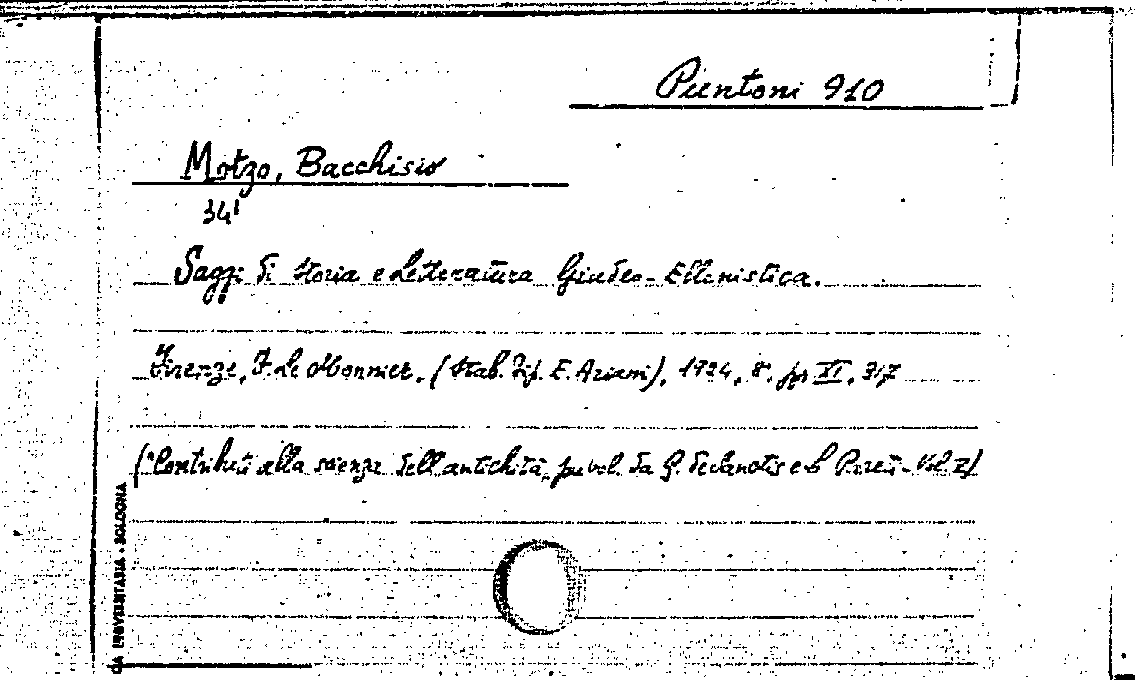 Puntoni 910
Motzo, Bacchisio
34'
Saggi di Storia e Letteratura Giudeo-Ellenistica.
Firenze, F. Le Monnier. (Stab. Tip. E. Ariani), 1924, 8°. pp XI. 317
(Contributi alla scienza dell'antichità, pubbl. da G. De Sanctis e L. Pareti - Vol I)
UNIVERSITARIA - BOLOGNA